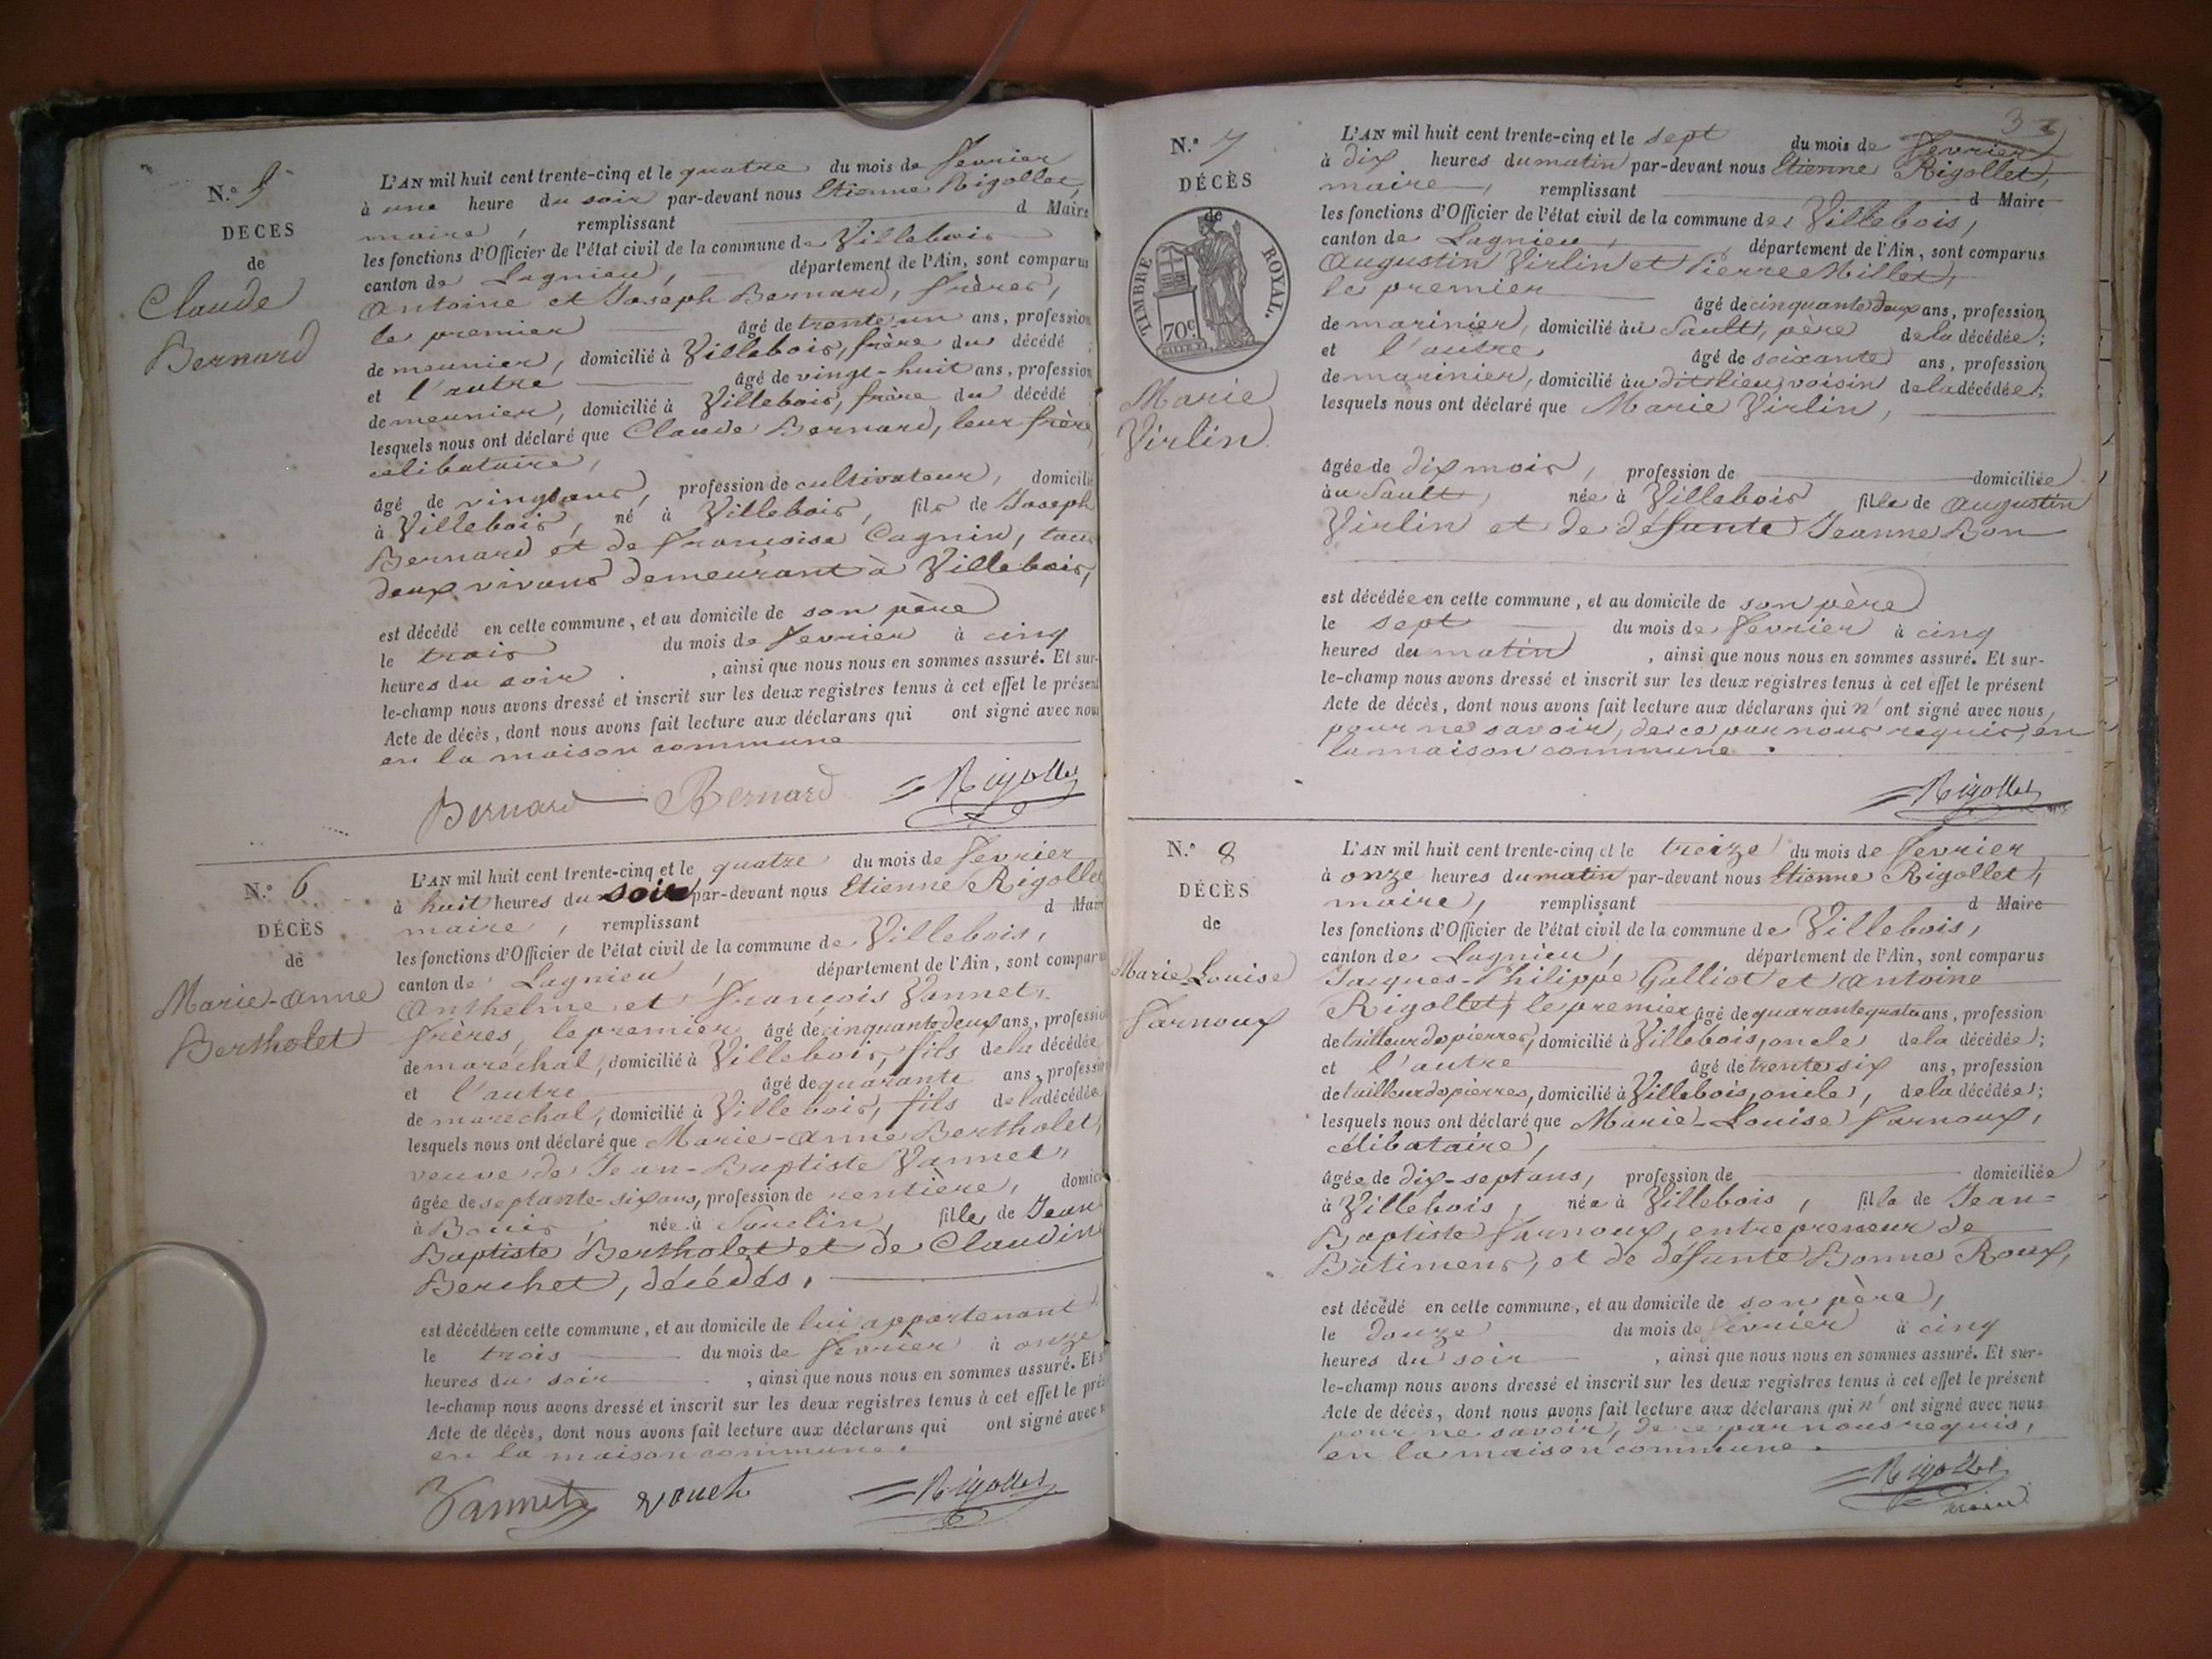 N.o 5
DECES
de
Claude
Bernard
L'AN mil huit cent trente-cinq et le quatre du mois de fevrier
à une heure du soir par-devant nous Etienne Rigollet,
maire, remplissant d Maire
les fonctions d'Officier de l'état civil de la commune de Villebois
canton de Lagnieu, département de l'Ain, sont comparus
Antoine et Joseph Bernard, frères,
le premier âgé de trente un ans, profession
de meunier, domicilié à Villebois, frère du décédé
et l'autre âgé de vingt-huit ans, profession
de meunier, domicilié à Villebois, frère du décédé
lesquels nous ont déclaré que Claude Bernard, leur frère
célibataire,
âgé de vingt ans, profession de cultivateur, domicilié
à Villebois, né à Villebois, fils de Joseph
Bernard et de françoise Cagnin, tous
deux vivans demeurant à Villebois,
est décédé en cette commune, et au domicile de son père
le trois du mois de fevrier à cinq
heures du soir, ainsi que nous nous en sommes assuré. Et sur-
le-champ nous avons dressé et inscrit sur les deux registres tenus à cet effet le présent
Acte de décès, dont nous avons fait lecture aux déclarans qui ont signé avec nous
en la maison commune
Bernard Bernard Rigollet
N.o 6
DÉCÈS
de
Marie-anne
Bertholet
L'AN mil huit cent trente-cinq et le quatre du mois de fevrier
à huit heures du soir par-devant nous Etienne Rigollet
maire, remplissant d Maire
les fonctions d'Officier de l'état civil de la commune de Villebois,
canton de Lagnieu, département de l'Ain, sont comparus
Anthelme et françois Vannet,
frères, le premier âgé de cinquante deux ans, profession
de maréchal, domicilié à Villebois, fils de la décédée
et l'autre âgé de quarante ans, profession
de marechal, domicilié à Villebois, fils de la décédée
lesquels nous ont déclaré que Marie-anne Bertholet,
veuve de Jean-Baptiste Vannet,
âgée de septante-six ans, profession de rentière, domici
à Bouis, née à Souclin, fille de Jean
Baptiste Bertholet et de Claudine
Berchet, décédés,
est décédée en cette commune, et au domicile de lui appartenant
le trois du mois de fevrier à onze
heures du soir, ainsi que nous nous en sommes assuré. Et s
le-champ nous avons dressé et inscrit sur les deux registres tenus à cet effet le prés
Acte de décès, dont nous avons fait lecture aux déclarans qui ont signé avec n
en la maison commune.
Vannet Rigollet
3
N.o 7
DÉCÈS
de
TIMBRE ROYAL.
70c
Marie
Virlin
L'AN mil huit cent trente-cinq et le sept du mois de fevrier
à dix heures du matin par-devant nous Etienne Rigollet,
maire, remplissant d Maire
les fonctions d'Officier de l'état civil de la commune de Villebois,
canton de Lagnieu, département de l'Ain, sont comparus
Augustin Virlin et Pierre Millet,
le premier âgé de cinquante deux ans, profession
de marinier, domicilié au Sault, père de la décédée;
et l'autre âgé de soixante ans, profession
de marinier, domicilié au dit lieu, voisin de la décédée;
lesquels nous ont déclaré que Marie Virlin,
âgée de dix mois, profession de domiciliée
au Sault, née à Villebois fille de Augustin
Virlin et de défunte Jeanne Bon
est décédée en cette commune, et au domicile de son père
le sept du mois de fevrier à cinq
heures du matin, ainsi que nous nous en sommes assuré. Et sur-
le-champ nous avons dressé et inscrit sur les deux registres tenus à cet effet le présent
Acte de décès, dont nous avons fait lecture aux déclarans qui n'ont signé avec nous,
pour ne savoir, de ce par nous requis, en
la maison commune.
Rigollet
N.o 8
DÉCÈS
de
Marie-Louise
Farnoux
L'AN mil huit cent trente-cinq et le treize du mois de fevrier
à onze heures du matin par-devant nous Etienne Rigollet,
maire, remplissant d Maire
les fonctions d'Officier de l'état civil de la commune de Villebois,
canton de Lagnieu, département de l'Ain, sont comparus
Jacques-Philippe Galliot et Antoine
Rigollet, le premier âgé de quarante quatre ans, profession
de tailleur de pierres, domicilié à Villebois, oncle de la décédée;
et l'autre âgé de trente six ans, profession
de tailleur de pierres, domicilié à Villebois, oncle, de la décédée;
lesquels nous ont déclaré que Marie-Louise Farnoux,
célibataire,
âgée de dix-sept ans, profession de domiciliée
à Villebois, née à Villebois, fille de Jean-
Baptiste Farnoux, entrepreneur de
Bâtimens, et de défunte Bonne Roux,
est décédé en cette commune, et au domicile de son père,
le douze du mois de fevrier à cinq
heures du soir, ainsi que nous nous en sommes assuré. Et sur-
le-champ nous avons dressé et inscrit sur les deux registres tenus à cet effet le présent
Acte de décès, dont nous avons fait lecture aux déclarans qui n'ont signé avec nous
pour ne savoir, de ce par nous requis,
en la maison commune.
Rigollet
maire